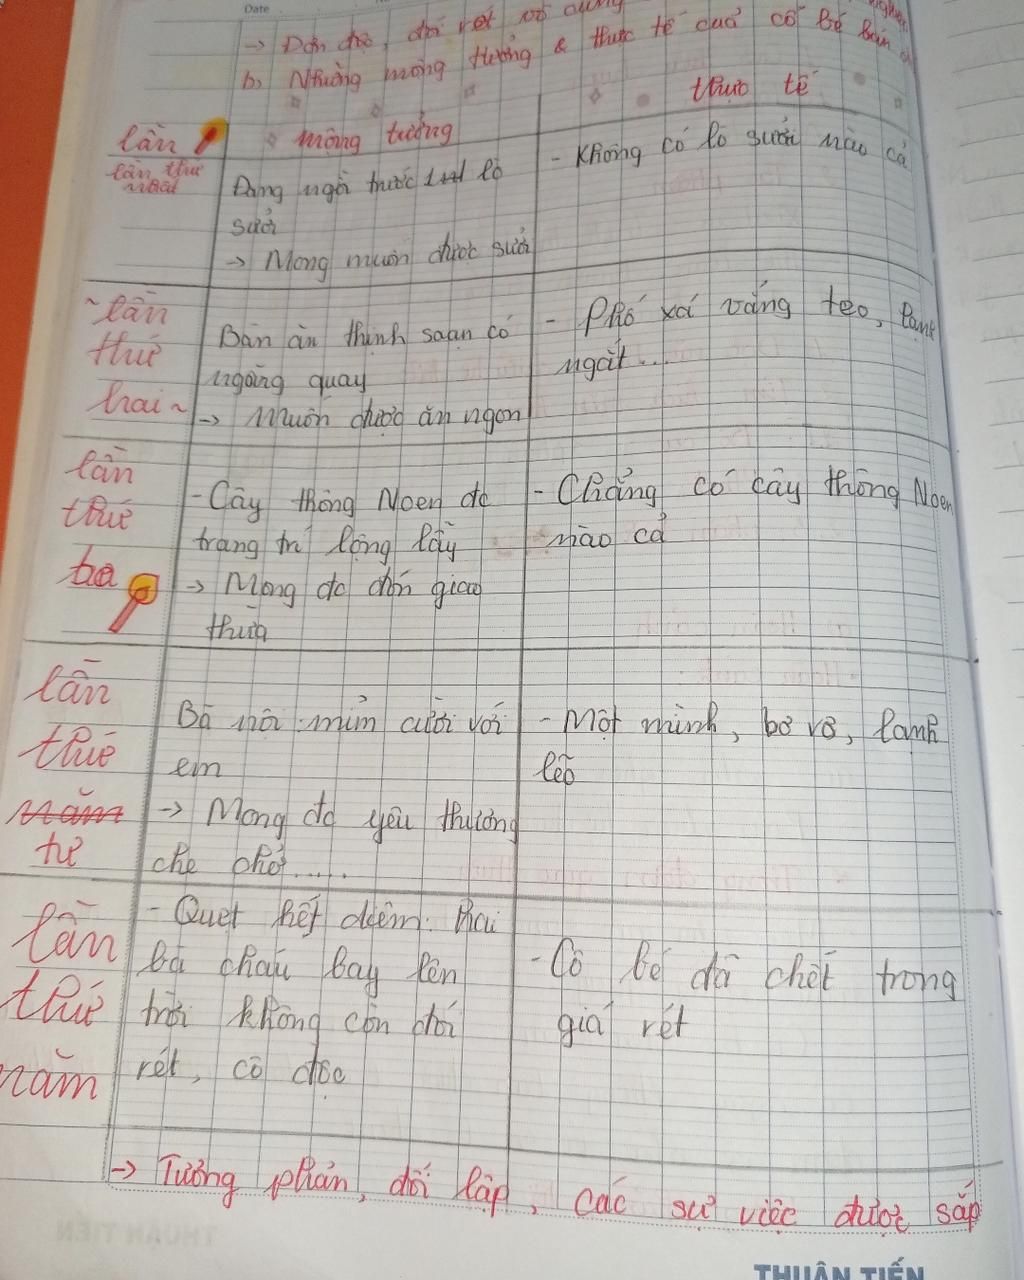 Date
→ Đơn độc, đói rét vô cùng
b, Những mộng tưởng & thực tế của cô bé bán
lần
mộng tưởng
thực tế
lần thứ
nhất
Đang ngồi trước lò
sưởi
→ Mong muốn được sưởi
- Không có lò sưởi nào cả
~ lần
thứ
hai ~
Bàn ăn thịnh soạn có
ngỗng quay
→ Muốn được ăn ngon
- Phố xá vắng teo, lạnh
ngắt...
lần
thứ
ba
- Cây thông Noen đc
trang trí lộng lẫy
→ Mong đc đón giao
thừa
- Chẳng có cây thông Noen
nào cả
lần
thứ
năm
tư
Bà nội mỉm cười với
em
→ Mong đc yêu thương
che chở.....
- Một mình, bơ vơ, lạnh
lẽo
lần
thứ
năm
- Quẹt hết diêm. Hai
bà cháu bay lên
trời không còn đói
rét, cô độc
- Cô bé đã chết trong
giá rét
→ Tương phản, đối lập, các sự việc được sắp
THUẬN TIẾN